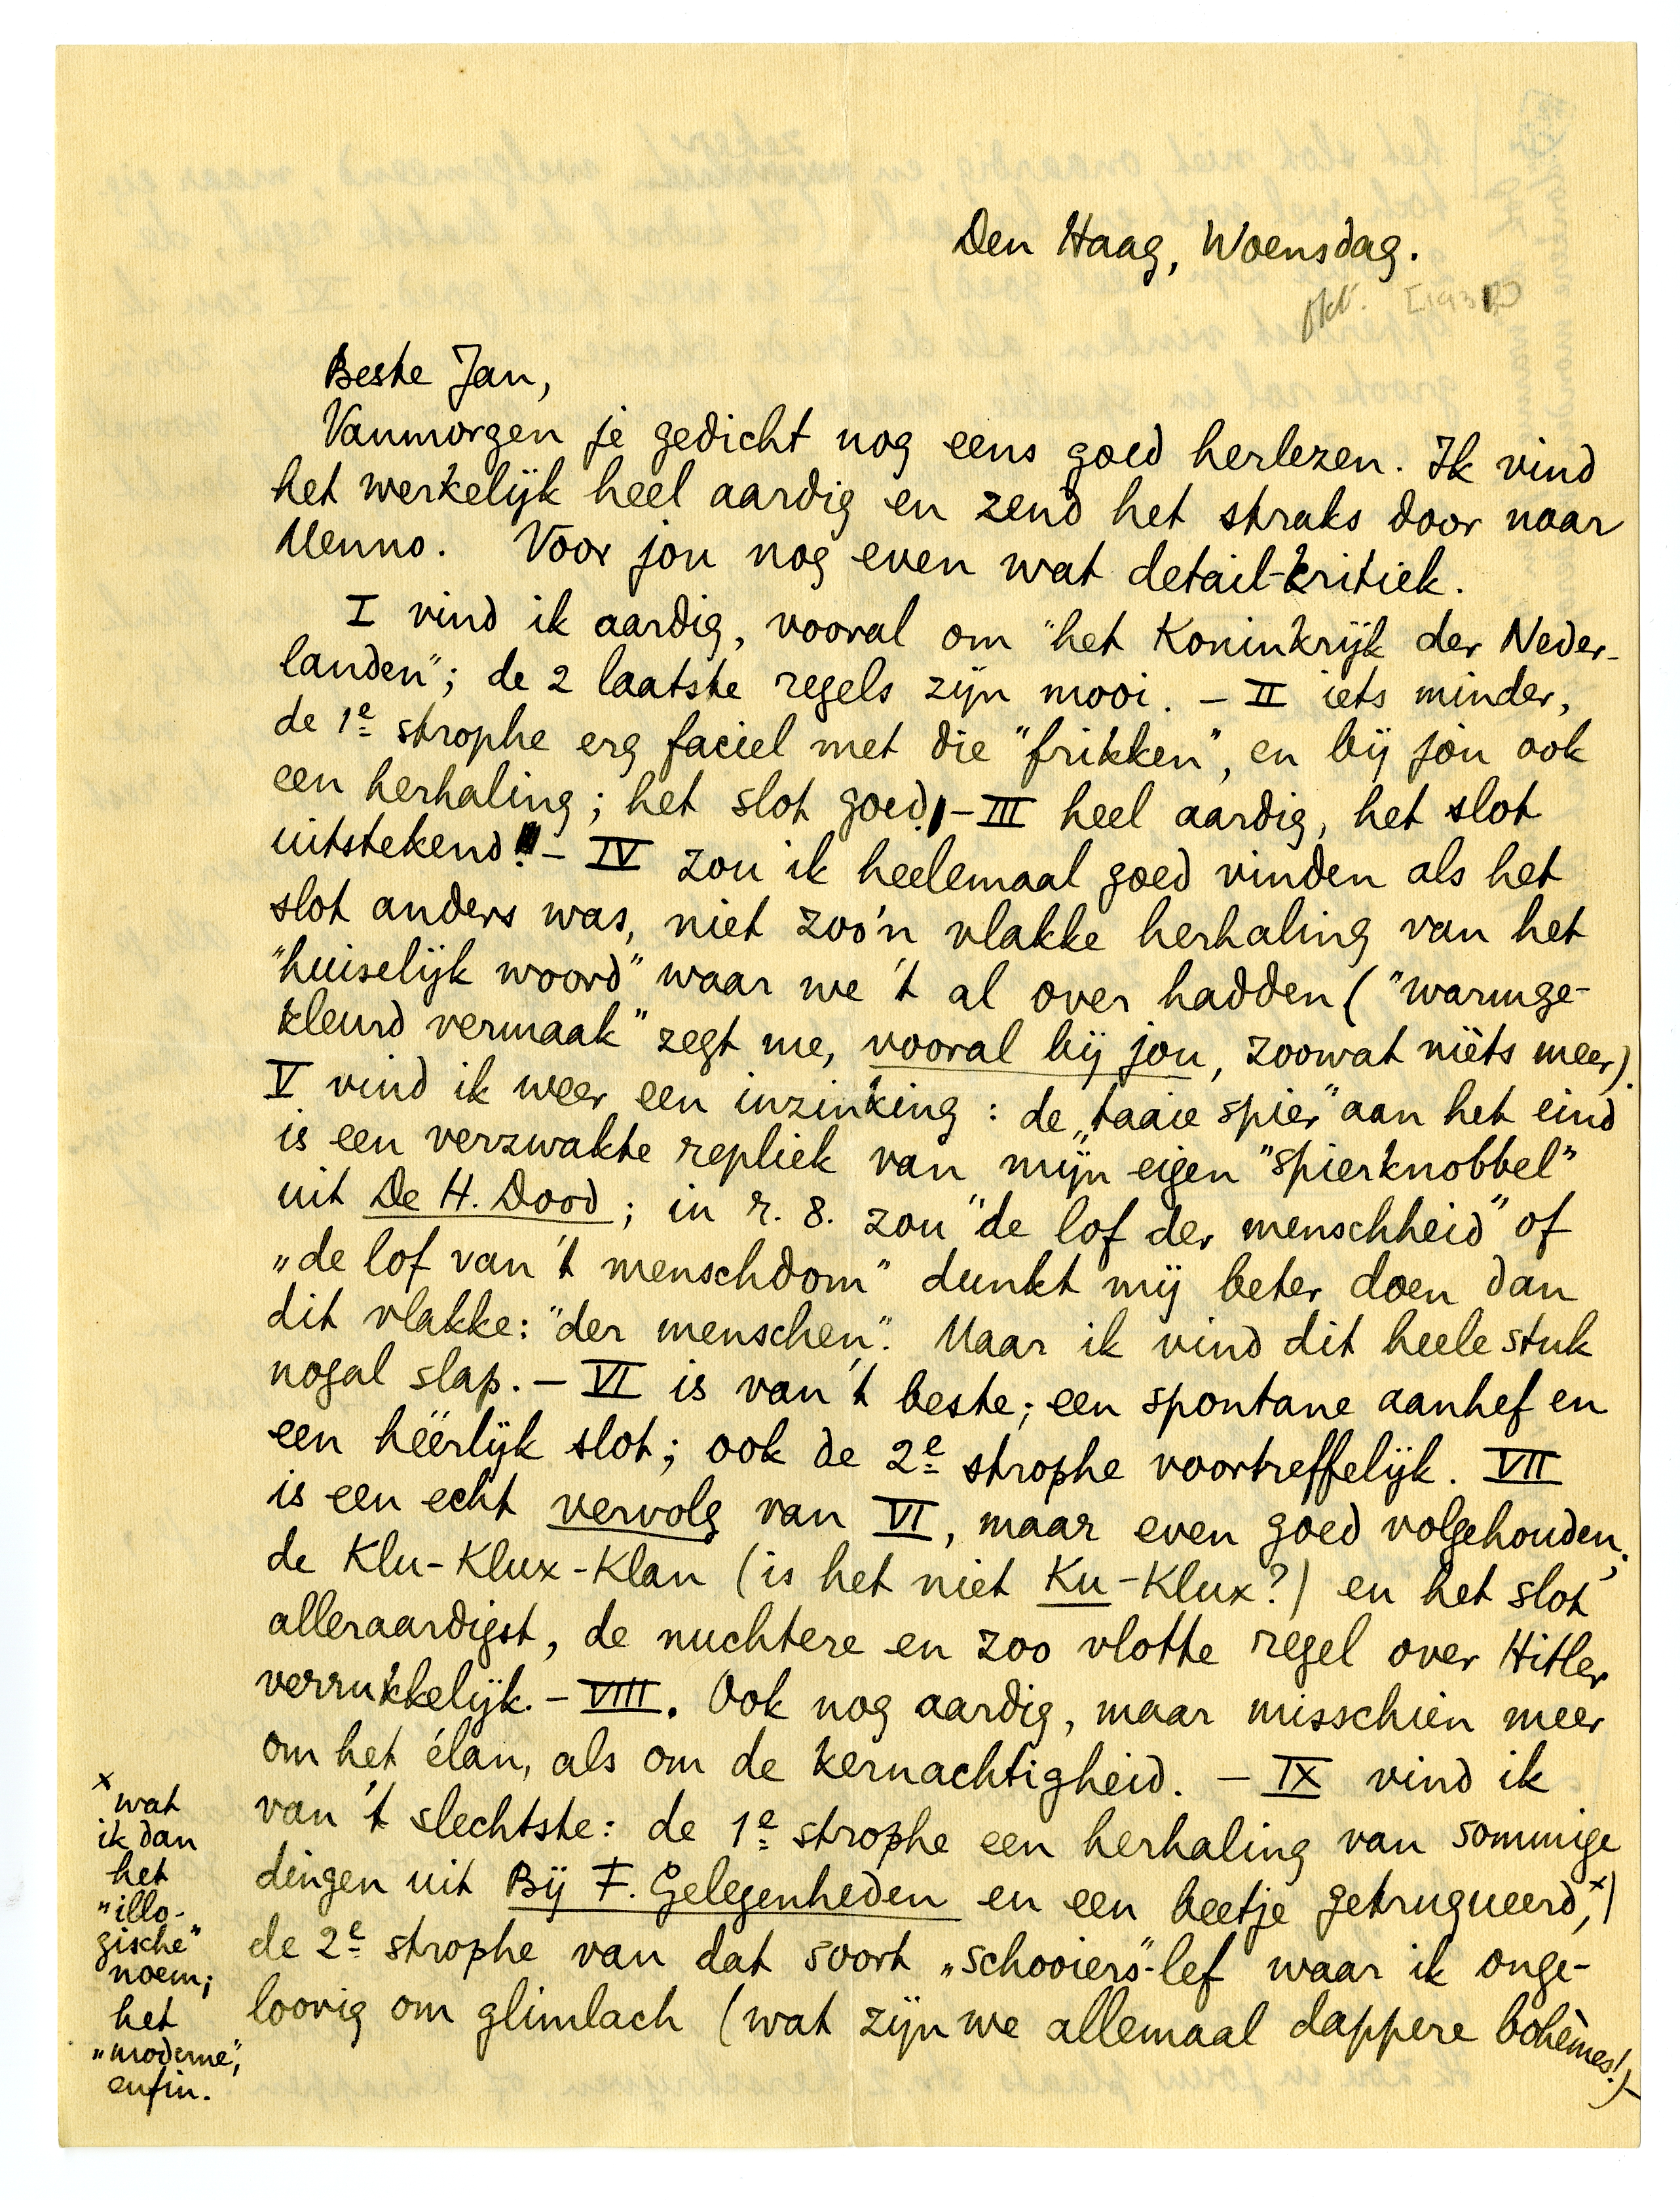 Den Haag, Woensdag.
okt. [1932]
Beste Jan,
Vanmorgen je gedicht nog eens goed herlezen. Ik vind
het werkelijk heel aardig en zend het straks door naar
Menno. Voor jou nog even wat detail-kritiek.
I vind ik aardig, vooral om "het Koninkrijk der Neder-
landen"; de 2 laatste regels zijn mooi. – II iets minder,
de 1e strophe erg faciel met die "frikken", en bij jou ook
een herhaling; het slot goed. – III heel aardig, het slot
uitstekend! – IV zou ik heelemaal goed vinden als het
slot anders was, niet zoo'n vlakke herhaling van het
"huiselijk woord" waar we 't al over hadden ("warmge-
kleurd vermaak" zegt me, vooral bij jou, zoowat niets meer).
V vind ik weer een inzinking: de „taaie spier" aan het eind
is een verzwakte repliek van mijn eigen "spierknobbel"
uit De H. Dood; in r. 8. zou "de lof der menschheid" of
„de lof van 't menschdom" dunkt mij beter doen dan
dit vlakke: "der menschen". Maar ik vind dit heele stuk
nogal slap. – VI is van 't beste; een spontane aanhef en
een héérlijk slot; ook de 2e strophe voortreffelijk. VII
is een echt vervolg van VI, maar even goed volgehouden;
de Klu-Klux-Klan (is het niet Ku-Klux?) en het slot
alleraardigst, de nuchtere en zoo vlotte regel over Hitler
verrukkelijk. – VIII. Ook nog aardig, maar misschien meer
om het élan, als om de kernachtigheid. – IX vind ik
van 't slechtste: de 1e strophe een herhaling van sommige
dingen uit Bij F. Gelegenheden en een beetje getruqueerd,x)
de 2e strophe van dat soort „schooiers"-lef waar ik onge-
loovig om glimlach (wat zijn we allemaal dappere bohèmes!) –
x wat
ik dan
het
„illo-
gische"
noem;
het
„moderne",
enfin.